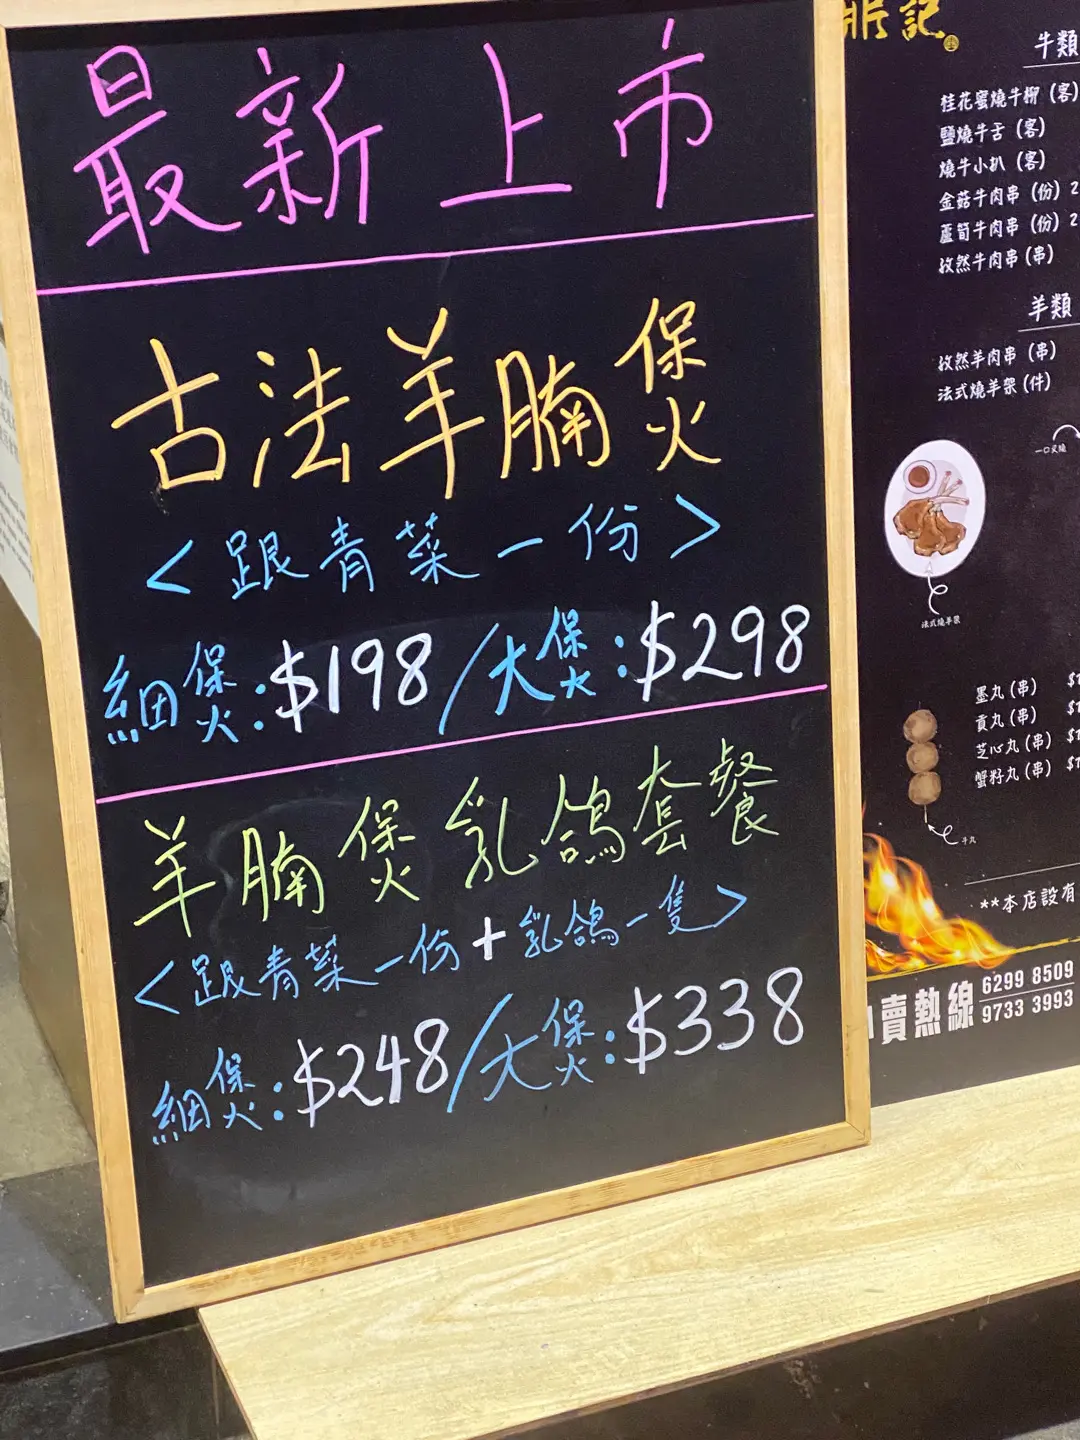 最新上市
古法羊腩煲
<跟青菜一份>
細煲:$198/大煲:$298
羊腩煲乳鴿套餐
<跟青菜一份+乳鴿一隻>
細煲:$248/大煲:$338
記
牛類
桂花蜜燒牛柳 (客)
鹽燒牛舌 (客)
燒牛小扒 (客)
金菇牛肉串 (份) 2
蘆筍牛肉串 (份) 2
孜然牛肉串 (串)
羊類
孜然羊肉串 (串)
法式燒羊架 (件)
法式燒羊架
墨丸 (串) $1
貢丸 (串) $1
芝心丸 (串) $1
蟹籽丸 (串) $1
牛丸
**本店設有
賣熱線
6299 8509
9733 3993